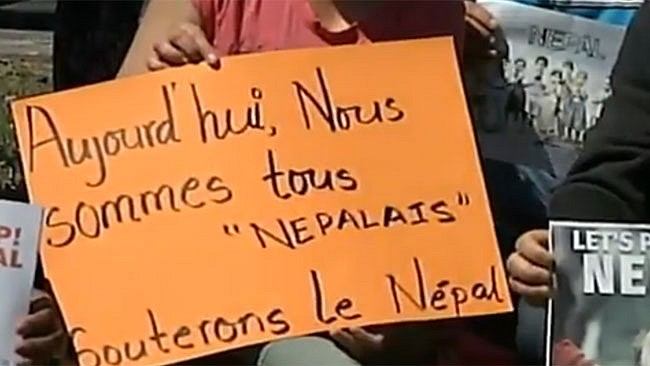 Aujourd'hui, Nous
sommes tous
"NEPALAIS"
Souterons Le Népal
NEPAL
P!
AL
LET'S P
NE